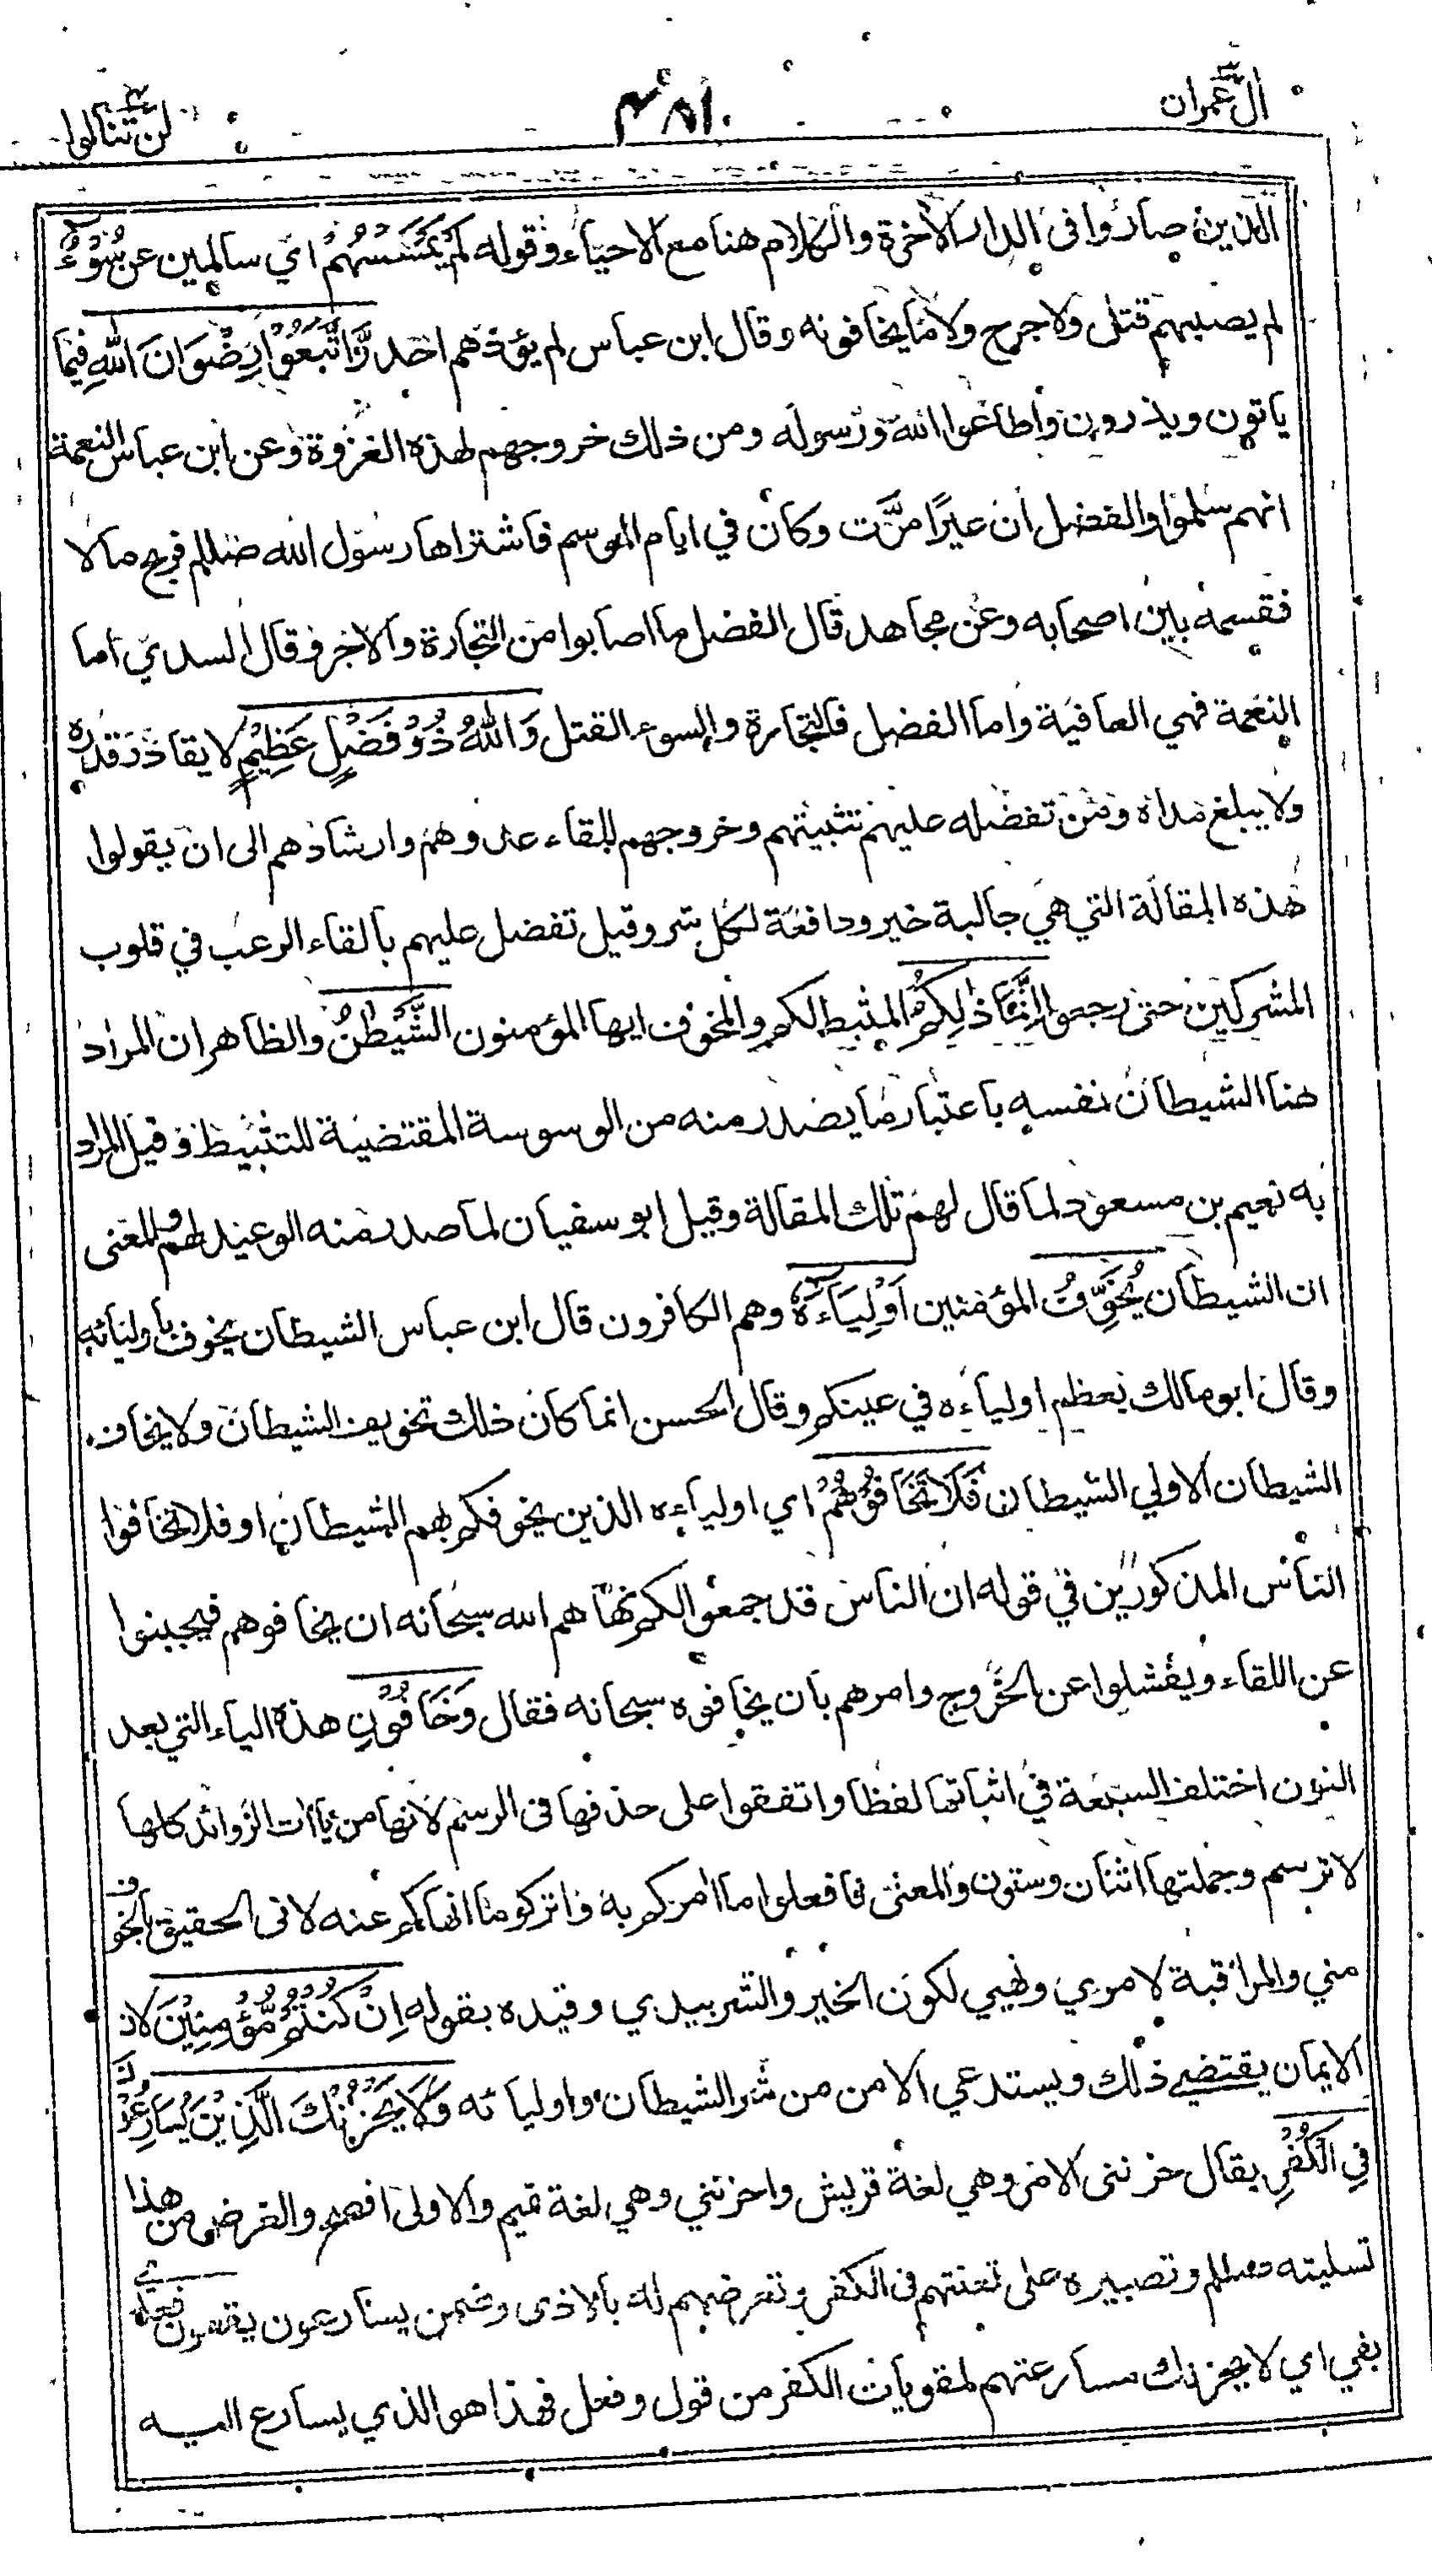 اٰل عمران
٥٨١
لن تنالوا
الذين صاروا فى الدار الاخرة والكلام هنا مع الاحياء وقوله لَمْ يَمْسَسْهُمْ اي سالمين عن سُوْءٌ
لم يصبهم قتل ولا جرح ولا ما يخافونه وقال ابن عباس لم يؤذهم احد وَّاتَّبَعُوْا رِضْوَانَ اللهِ فيما
ياتون ويذرون واطاعوا الله ورسوله ومن ذلك خروجهم لهذه الغزوة وعن ابن عباس النعمة
انهم سلموا والفضل ان عيرًا مرَّت وكان في ايام الموسم فاشتراها رسول الله صللم فربح مالا
فقسمه بين اصحابه وعن مجاهد قال الفضل ما اصابوا من التجارة والاجر وقال السدي اما
النعمة فهي العافية واما الفضل فالتجارة والسوء القتل وَاللهُ ذُوْ فَضْلٍ عَظِيْمٍ لا يقادر قدره
ولا يبلغ مداه ومن تفضله عليهم تثبيتهم وخروجهم للقاء عدوهم وارشادهم الى ان يقولوا
هذه المقالة التي هي جالبة خير ودافعة لكل شر وقيل تفضل عليهم بالقاء الرعب في قلوب
المشركين حتى رجعوا اِنَّمَا ذٰلِكُمُ المثبط لكم والمخوف ايها المؤمنون الشَّيْطٰنُ والظاهر ان المراد
هنا الشيطان نفسه باعتبار ما يصدر منه من الوسوسة المقتضية للتثبيط وقيل المراد
به نعيم بن مسعود لما قال لهم تلك المقالة وقيل ابو سفيان لما صدر منه الوعيد لهم والمعنى
ان الشيطان يُخَوِّفُ المؤمنين اَوْلِيَآءَهٗ وهم الكافرون قال ابن عباس الشيطان يخوف باوليائه
وقال ابو مالك يعظم اولياءه في عينكم وقال الحسن انما كان ذلك تخويف الشيطان ولا يخاف
الشيطان الا ولي الشيطان فَلَا تَخَافُوْهُمْ اي اولياءه الذين يخوفكم بهم الشيطان او فلا تخافوا
الناس المذكورين في قوله ان الناس قد جمعوا لكم نهاهم الله سبحانه ان يخافوهم فيجبنوا
عن اللقاء ويفشلوا عن الخروج وامرهم بان يخافوه سبحانه فقال وَخَافُوْنِ هذه الياء التي بعد
النون اختلف السبعة في اثباتها لفظا واتفقوا على حذفها فى الرسم لانها من ياآت الزوائد كلها
لا ترسم وجملتها اثنان وستون والمعنى فافعلوا ما امركم به واتركوا ما انهاكم عنه لانى الحقيق بالخوف
مني والمراقبة لامري ونهيي لكون الخير والشر بيدي وقيده بقوله اِنْ كُنْتُمْ مُّؤْمِنِيْنَ لان
الايمان يقتضي ذلك ويستدعي الامن من شر الشيطان واوليائه وَلَا يَحْزُنْكَ الَّذِيْنَ يُسَارِعُوْنَ
فِي الْكُفْرِ يقال حزننى الامر وهي لغة قريش واحزنني وهي لغة تميم والاولى افصح والغرض من هذا
تسليته صللم وتصبيره على تعنتهم فى الكفر وتعرضهم له بالاذى وضمن يسارعون يقعون فعدى
بفي اي لا يحزنك مسارعتهم لمقويات الكفر من قول وفعل فهذا هو الذي يسارع اليه